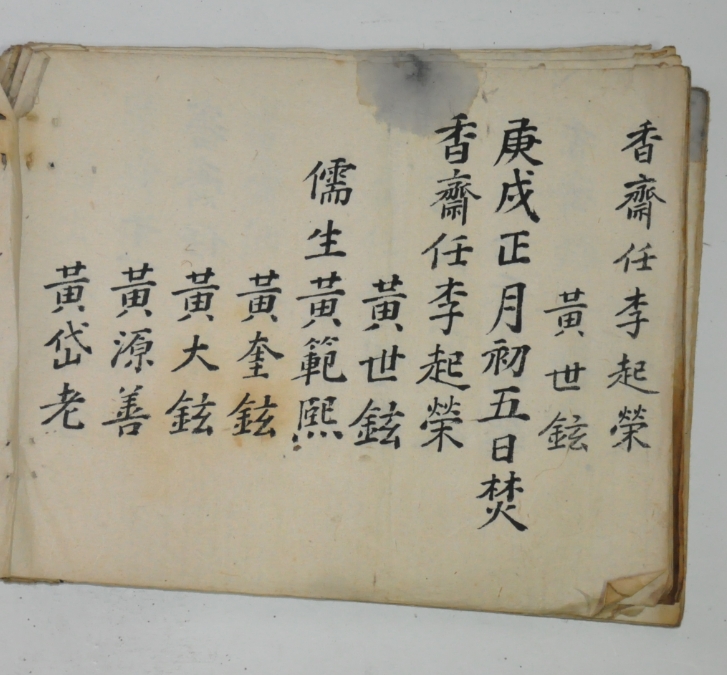 香齋任李起榮
黃世鉉
庚戌正月初五日焚
香齋任李起榮
黃世鉉
儒生黃範熙
黃奎鉉
黃大鉉
黃源善
黃岱老